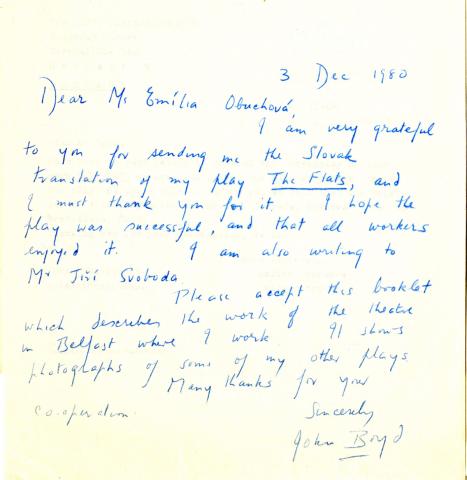 3 Dec 1980
Dear Ms Emília Obuchová,
I am very grateful
to you for sending me the Slovak
translation of my play The Flats, and
I must thank you for it. I hope the
play was successful, and that all workers
enjoyed it. I am also writing to
Mr Jiří Svoboda
Please accept this booklet
which describes the work of the theatre
in Belfast where I work. It shows
photographs of some of my other plays
Many thanks for your
co-operation.
Sincerely
John Boyd